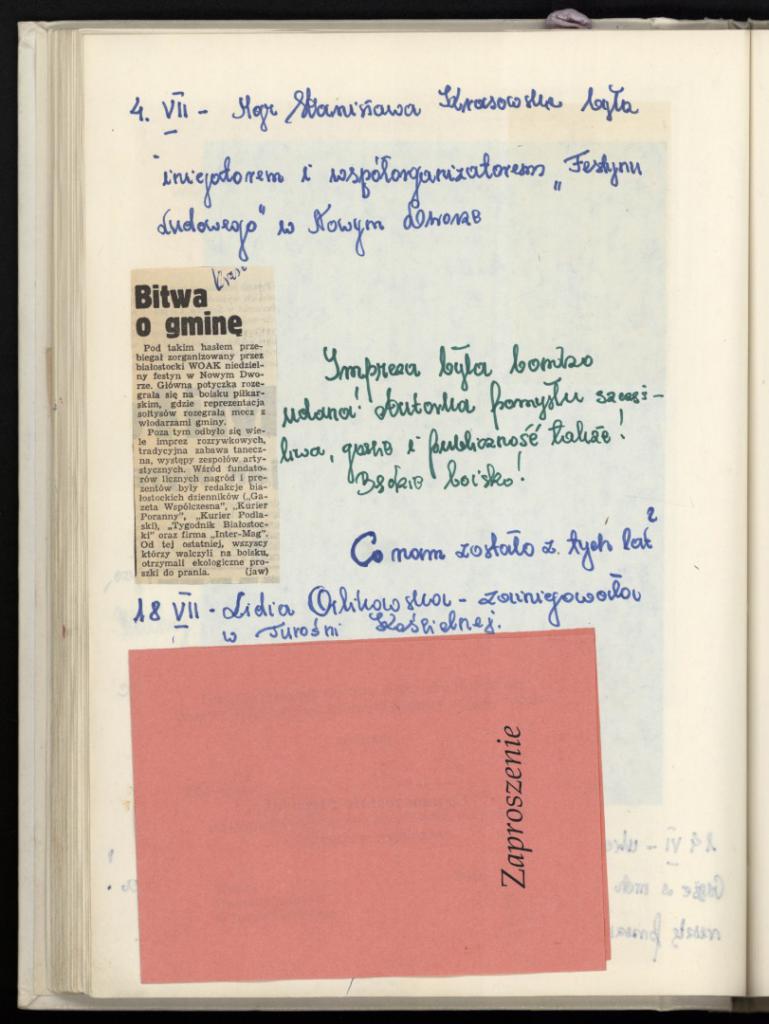 4. VII - Mgr Stanisława Krasowska była
inicjatorem i współorganizatorem „Festynu
Ludowego" w Nowym Dworze
Bitwa
o gminę
Pod takim hasłem prze-
biegał zorganizowany przez
białostocki WOAK niedziel-
ny festyn w Nowym Dwo-
rze. Główna potyczka roze-
grała się na boisku piłkar-
skim, gdzie reprezentacja
sołtysów rozegrała mecz z
włodarzami gminy.
Poza tym odbyło się wie-
le imprez rozrywkowych,
tradycyjna zabawa tanecz-
na, występy zespołów arty-
stycznych. Wśród fundato-
rów licznych nagród i pre-
zentów były redakcje bia-
łostockich dzienników („Ga-
zeta Współczesna", „Kurier
Poranny", „Kurier Podla-
ski), „Tygodnik Białostoc-
ki" oraz firma „Inter-Mag".
Od tej ostatniej, wszyscy
którzy walczyli na boisku,
otrzymali ekologiczne pro-
szki do prania. (jaw)
Impreza była bardzo
udana! Autorka pomysłu szczęś-
liwa, goście i publiczność także!
Będzie boisko!
Co nam zostało z tych lat?
18 VII - Lidia Orlikowska - zainigowała
w Turośni Kościelnej.
Zaproszenie